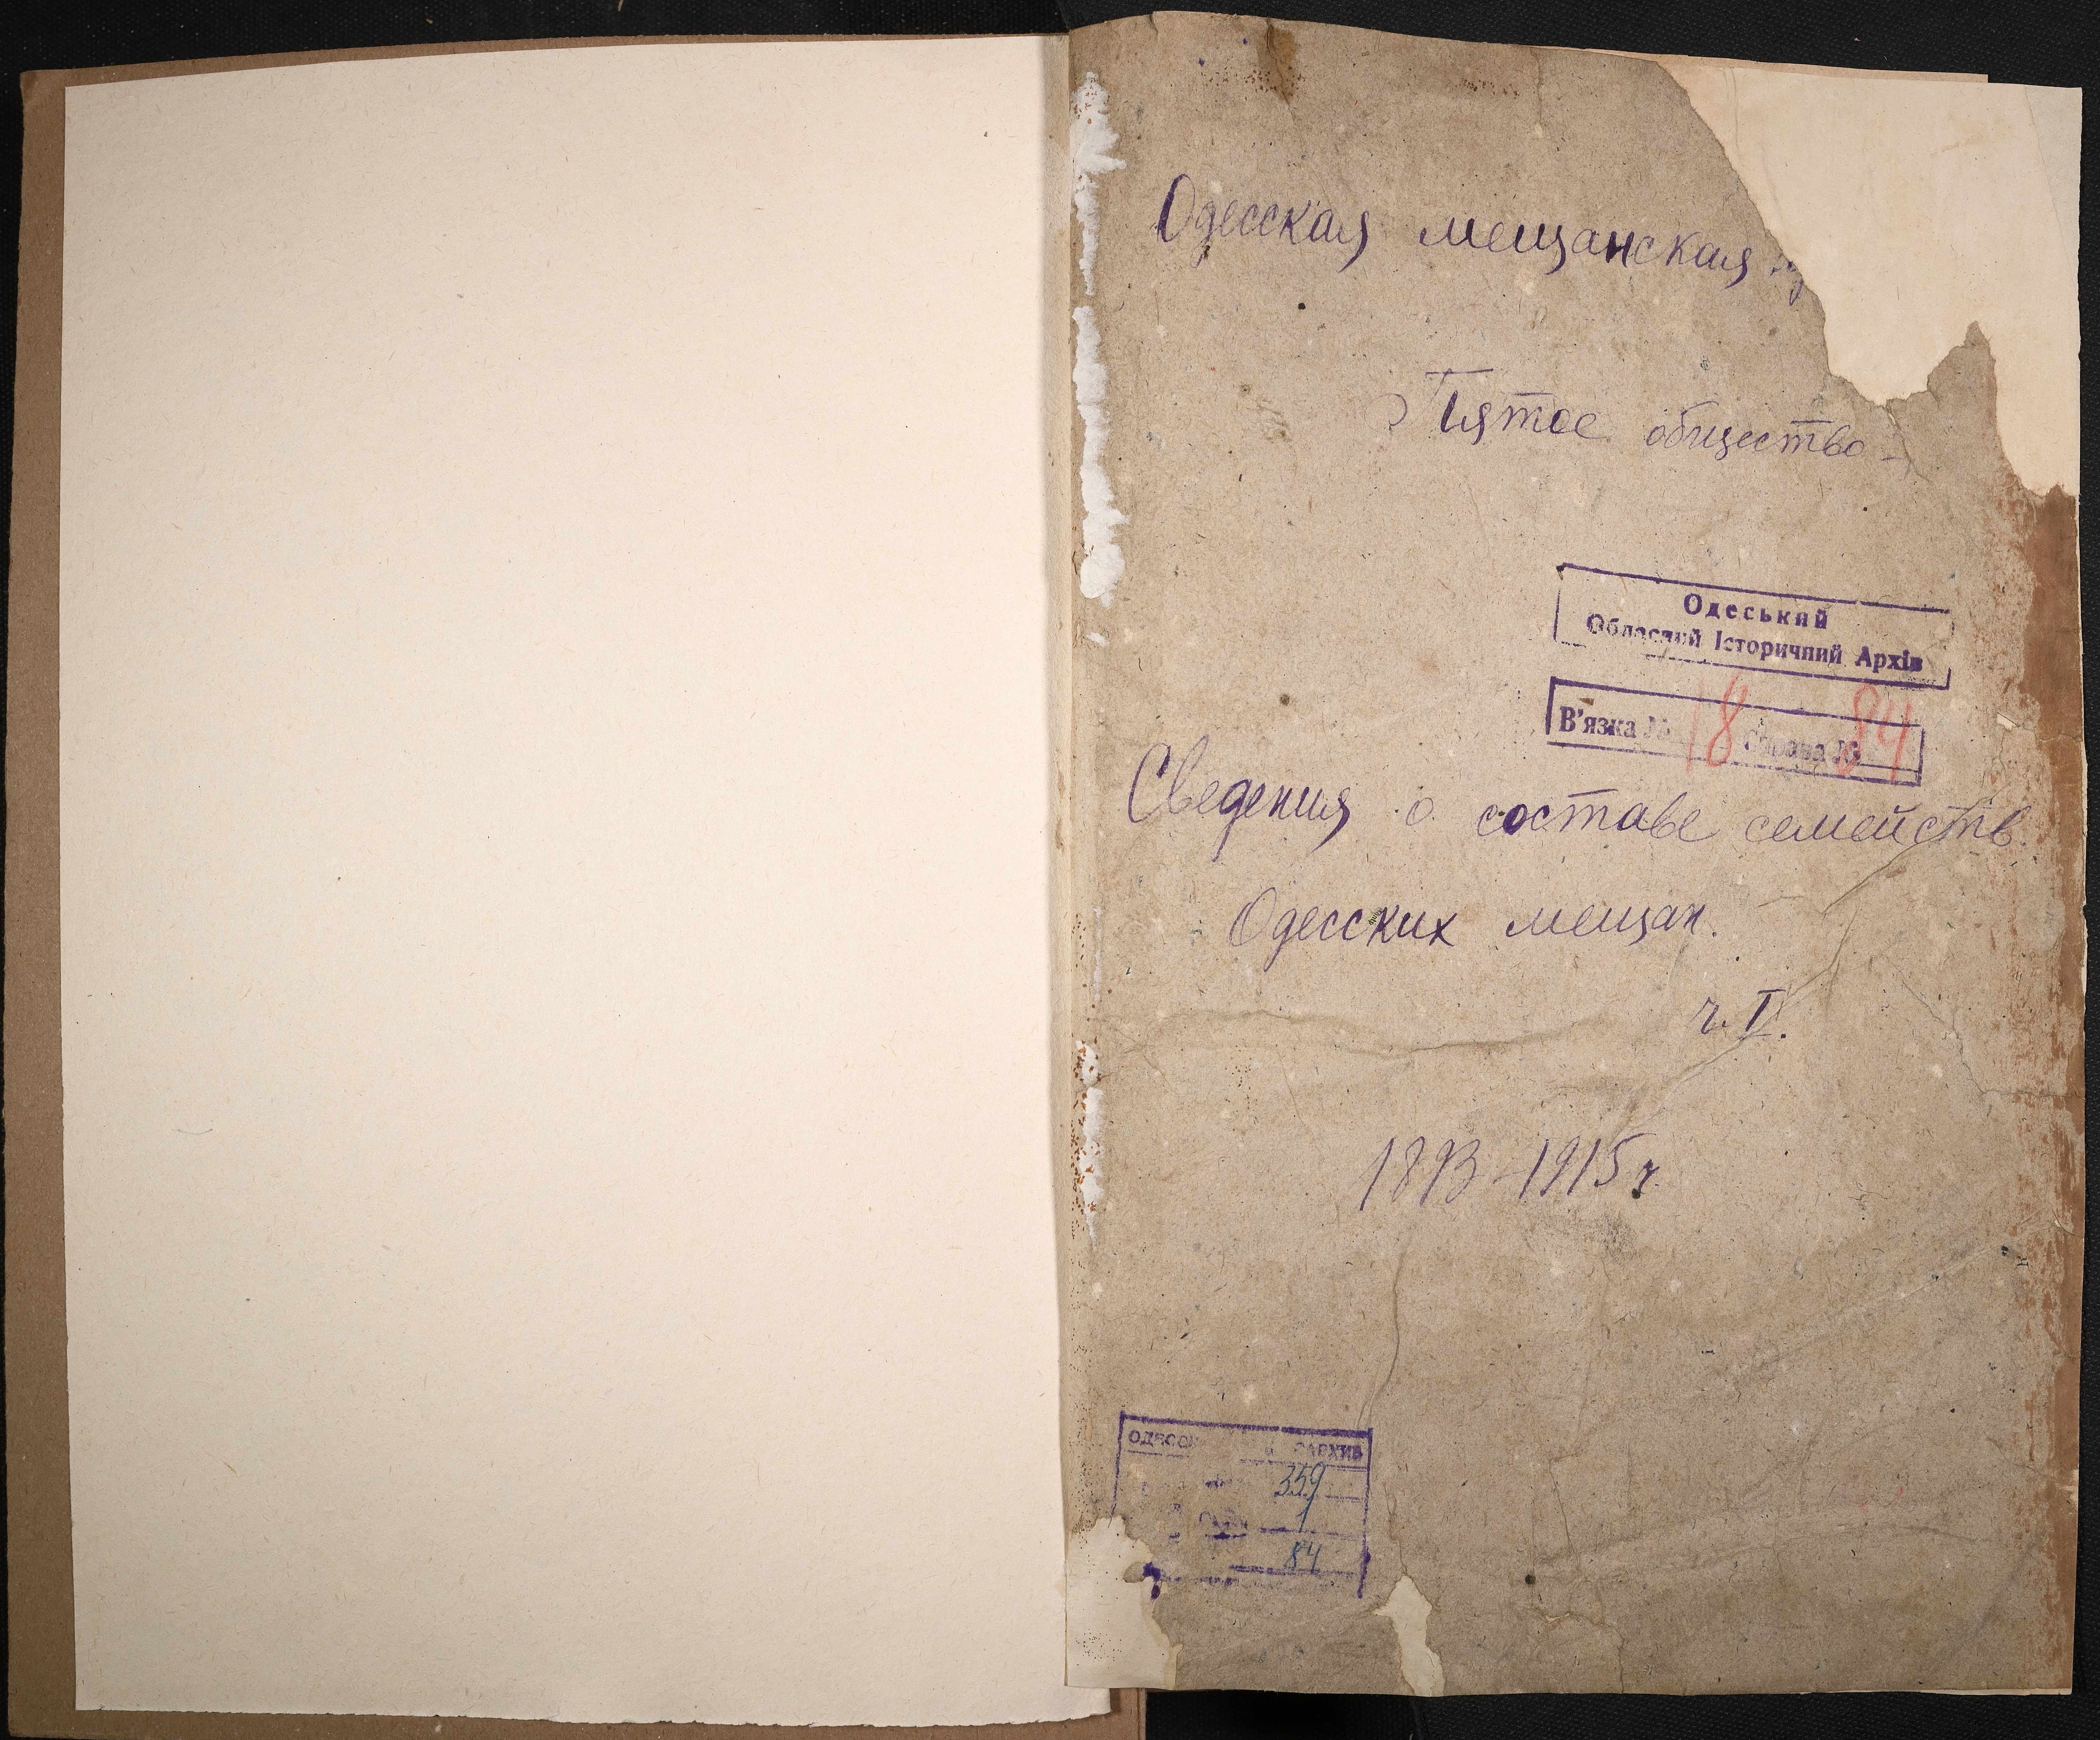 Одесская мещанская
Пятое общество
Одеський
Обласний Історичний Архів
В'язка № 18 справа № 84
Сведения о составе семейств
Одесских мещан.
ч. I.
1893-1915 г.
359
1
84